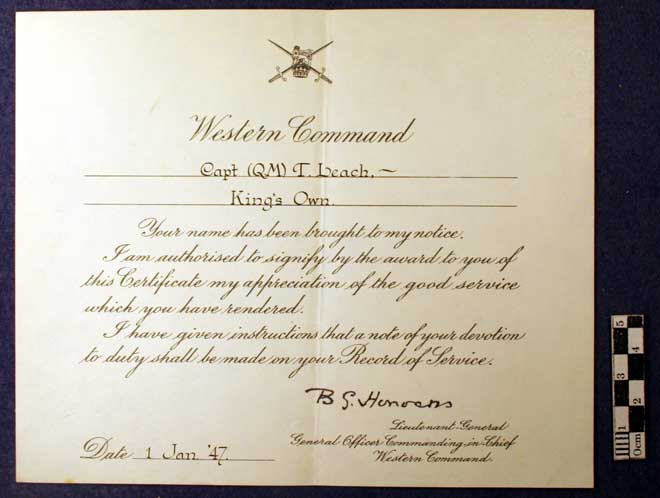 Western Command
Capt (QM) T. Leach, ~
King's Own.
Your name has been brought to my notice.
I am authorised to signify by the award to you of
this Certificate my appreciation of the good service
which you have rendered.
I have given instructions that a note of your devotion
to duty shall be made on your Record of Service.
B G. Horrocks
Lieutenant-General
General Officer Commanding-in-Chief
Western Command.
Date 1 Jan. '47.
0cm 1 2 3 4 5